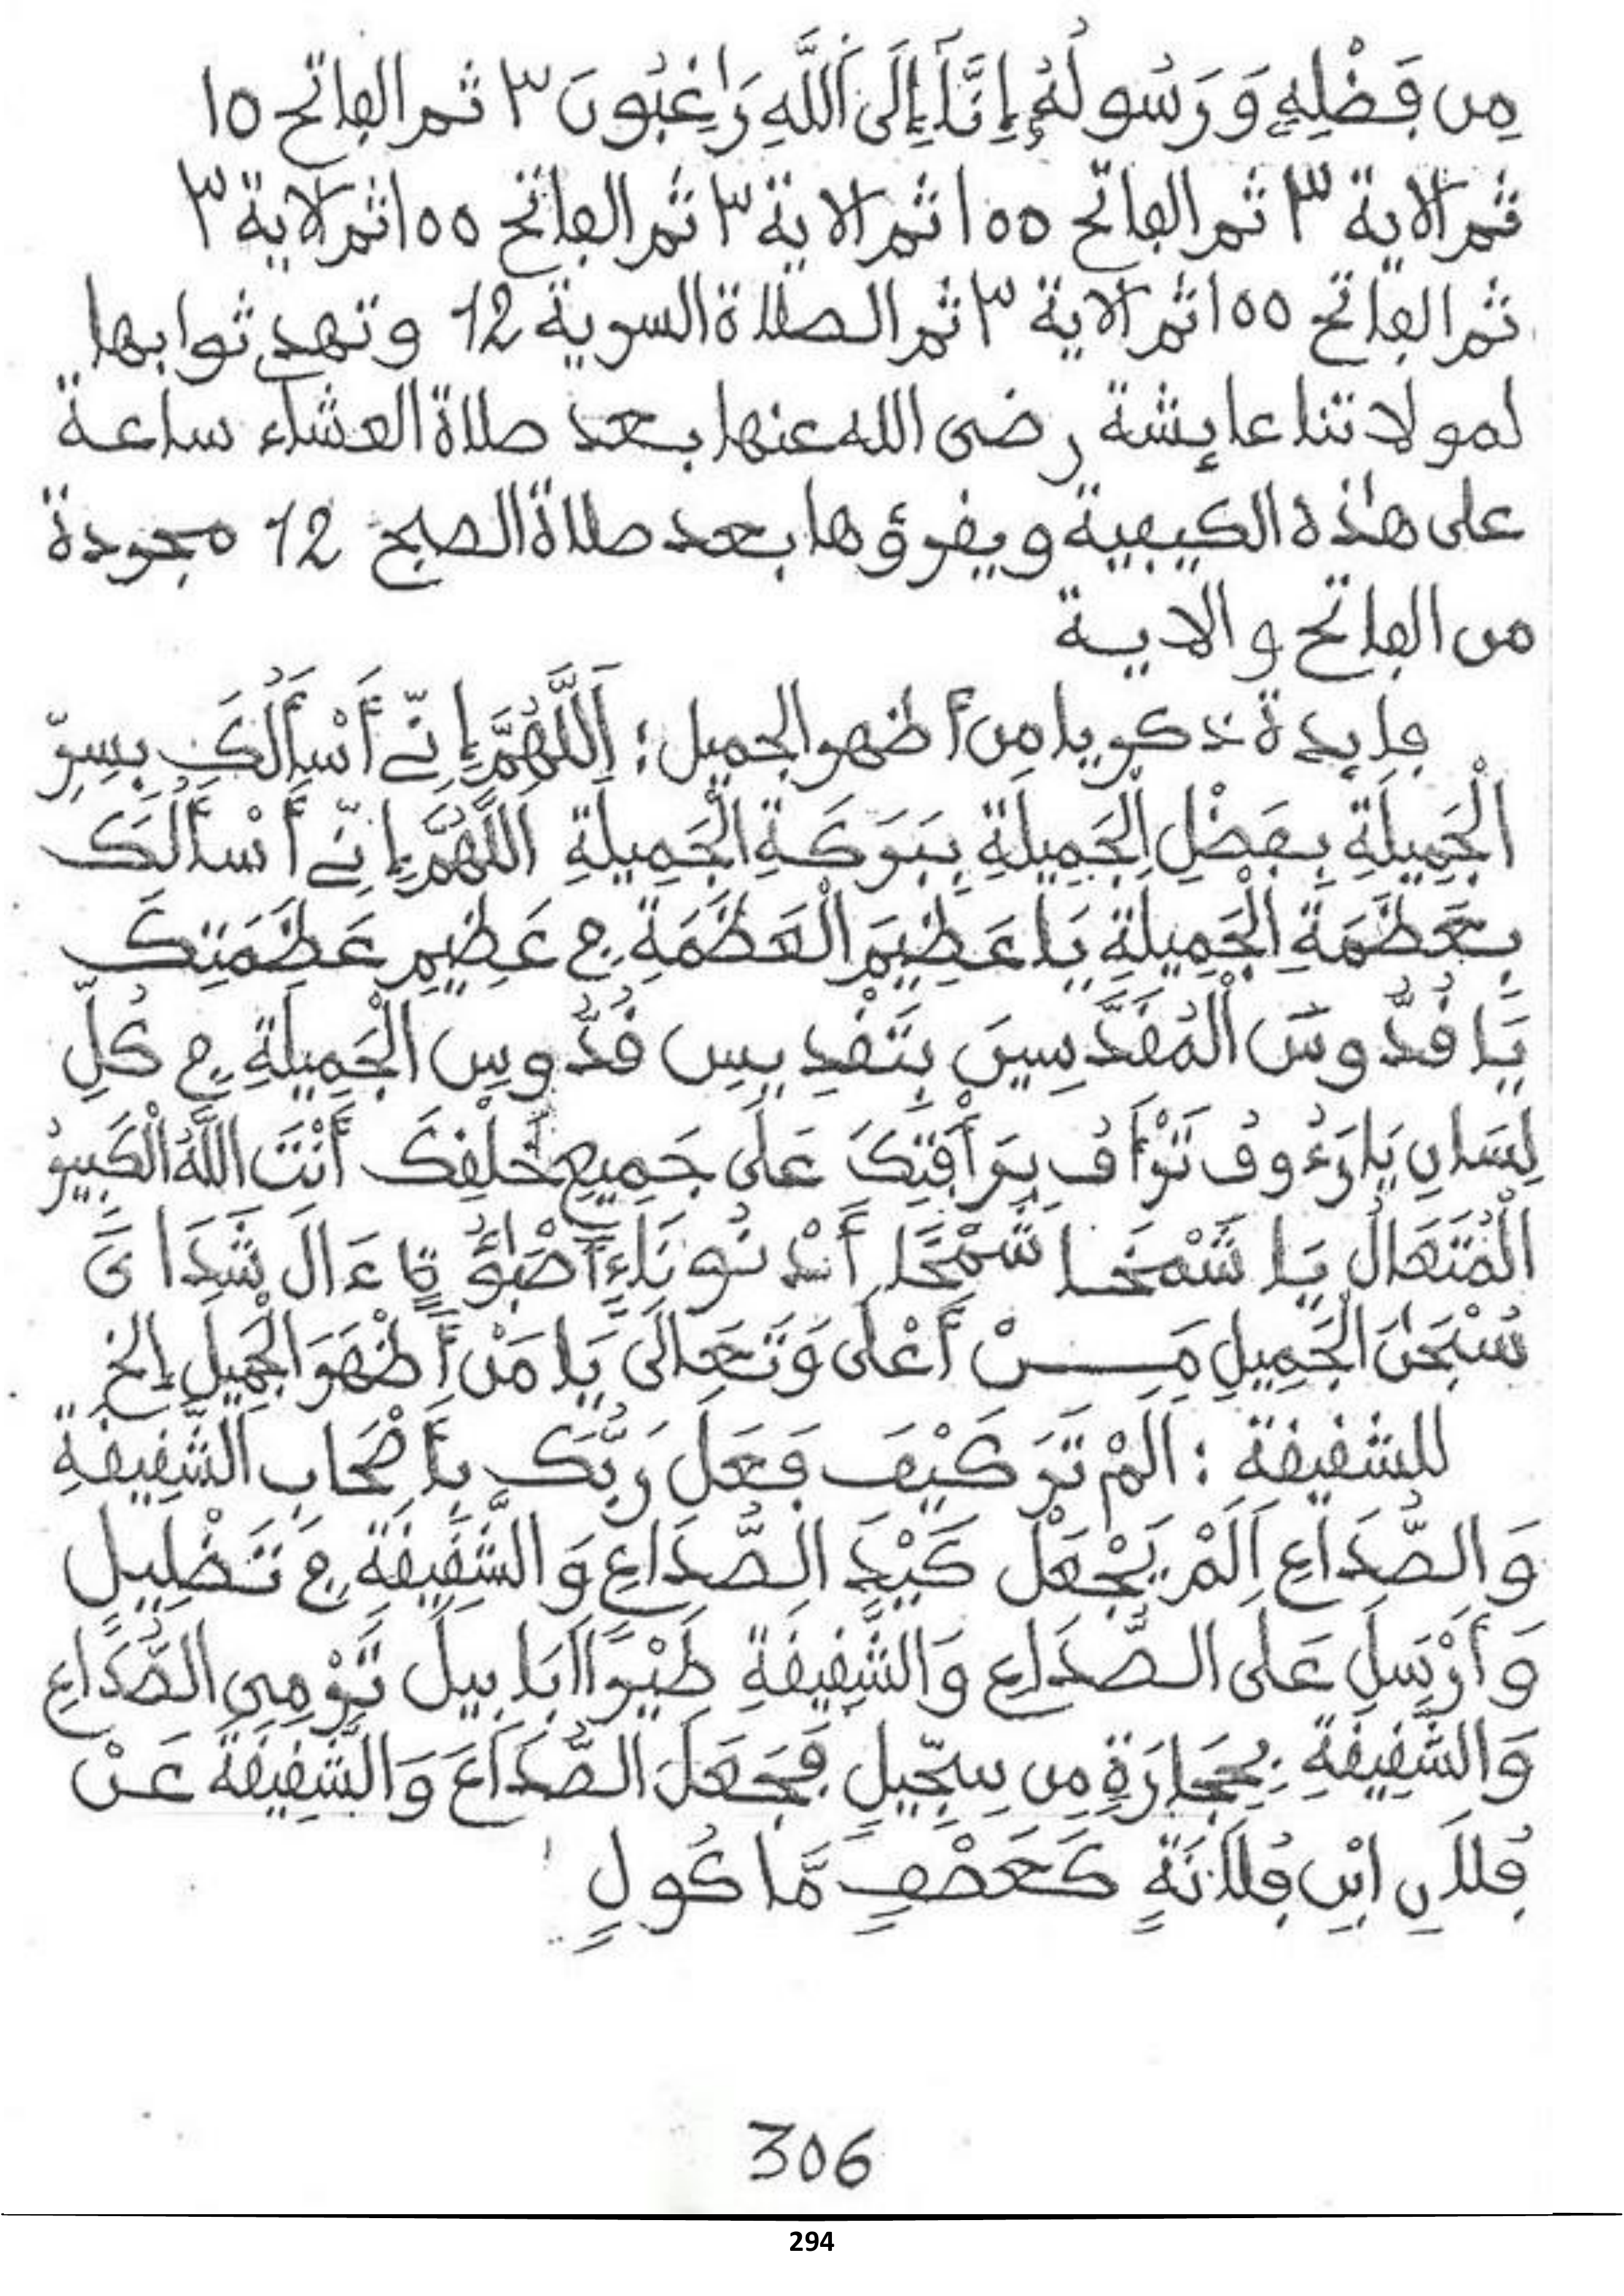 مِن فَضْلِهِ وَرَسُولُهُ إِنَّا إِلَى اَللَّهِ رَاغِبُونَ ٣ ثم الفاتح ١٥
ثم الاية ٣ ثم الفاتح ١٥٥ ثم الاية ٣ ثم الفاتح ١٥٥ ثم الاية ٣
ثم الفاتح ١٥٥ ثم الاية ٣ ثم الصلاة السرية 12 وتهدي ثوابها
لمولاتنا عايشة رضى الله عنها بعد صلاة العشاء ساعة
على هذه الكيفية ويقرؤها بعد صلاة الصبح 12 مجردة
من الفاتح والاية
فايدة ذكر يا مِن أظهر الجميل : اَللَّهُمَّ إِنِّے أَسْأَلُكَ بِسِرِّ
الْجَمِيلَةِ بِفَضْلِ الْجَمِيلَةِ بِبَرَكَةِ الْجَمِيلَةِ اللَّهُمَّ إِنِّے أَسْأَلُكَ
بِعَظَمَةِ الْجَمِيلَةِ يَا عَظِيمَ الْعَظَمَةِ فِے عَظِيمِ عَظَمَتِكَ
يَا قُدُّوسَ الْمُقَدِّسِينَ بِتَقْدِيسِ قُدُّوسِ الْجَمِيلَةِ فِے كُلِّ
لِسَانٍ يَا رَءُوفُ تَرْأَفُ بِرَأْفَتِكَ عَلَى جَمِيعِ خَلْقِكَ أَنْتَ اللَّهُ الْكَبِيرُ
الْمُتَعَالُ يَا شَمْخَا شَمْخَا
سُبْحَنَ الْجَمِيلِ مَنْ أَعْلَى وَتَعَالَى يَا مَنْ أَظْهَرَ الْجَمِيلَ إلخ
للشقيقة : اَلَمْ تَرَ كَيْفَ فَعَلَ رَبُّكَ بِأَصْحَابِ الشَّقِيقَةِ
وَالصُّدَاعِ اَلَمْ يَجْعَلْ كَيْدَ الصُّدَاعِ وَالشَّقِيقَةِ فِے تَضْلِيلٍ
وَأَرْسَلَ عَلَى الصُّدَاعِ وَالشَّقِيقَةِ طَيْرًا اَبَابِيلَ تَرْمِى الصُّدَاعِ
وَالشَّقِيقَةِ بِحِجَارَةٍ مِن سِجِّيلٍ فَجَعَلَ الصُّدَاعَ وَالشَّقِيقَةَ عَنْ
فُلَانِ ابْنِ فُلَانَةٍ كَعَصْفٍ مَّاكُولٍ
306
294